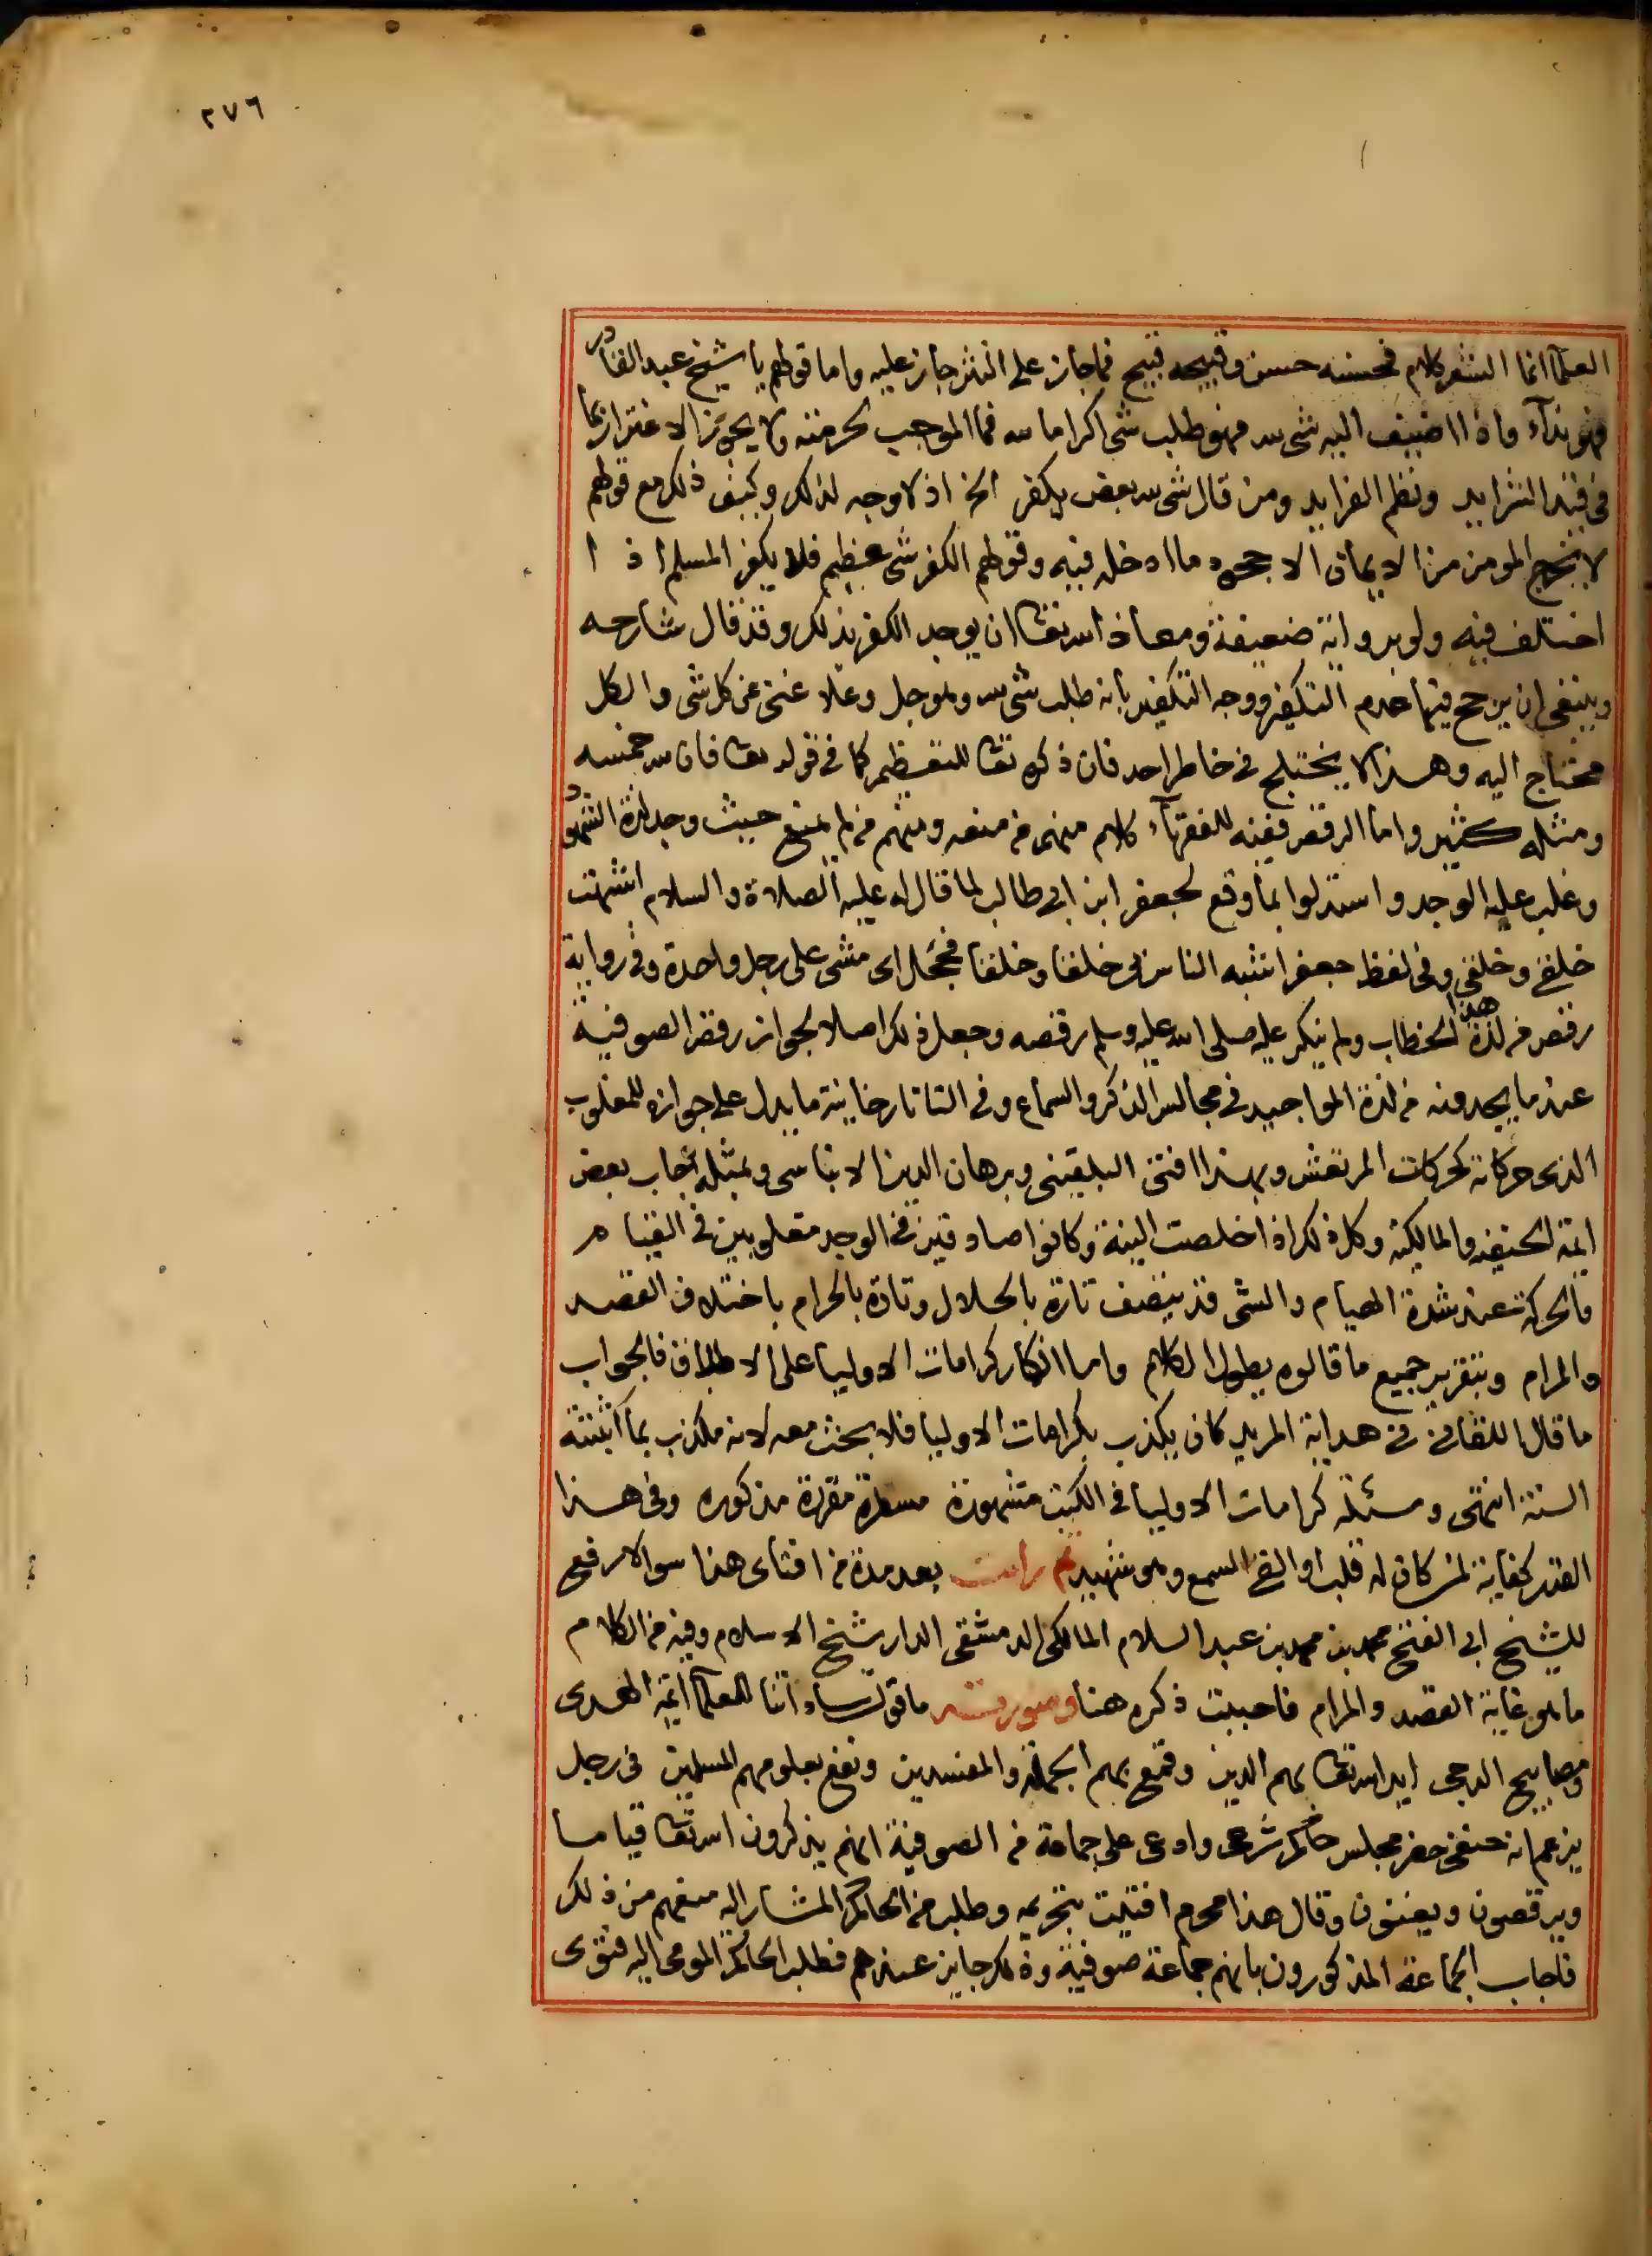 ٢٧٦
العلماء انما الشعر كلام فحسنه حسن وقبيحه قبيح فما جاز على النثر جاز عليه واما قولهم يا شيخ عبد القادر
فهو نداء واذا اضيف اليه شى لله فهو طلب شى اكراما لله فما الموجب لحرمته ولا يجوز الاغترار بما
فى قيد الشرايد ونظم الفرايد ومن قال شى لله بعض يكفر الخ اذ لا وجه لذلك وكيف ذلك مع قولهم
لا يخرج المومن من الايمان الا جحود ما ادخله فيه وقولهم الكفر شى عظيم فلا يكفر المسلم اذ ا
اختلف فيه ولو برواية ضعيفة ومعاذ الله تعا ان يوجد الكفر بذلك وقد قال شارحه
وينبغى ان يرجح فيها عدم التكفير ووجه التكفير بانه طلب شى لله وهو جل وعلا غنى عن كل شى والكل
محتاج اليه وهذا لا يختلج فى خاطر احد فان ذكره تعا للتعظيم كما فى قوله تعا فان لله خمسه
ومثله كثير واما الرقص ففيه للفقهاء كلام منهم من منعه ومنهم من لم يمنع حيث وجد لذة الشهود
وغلب عليه الوجد واستدلوا بما وقع لجعفر ابن ابى طالب لما قال له عليه الصلاة والسلام اشبهت
خلقى وخلقى وفى لفظ جعفر اشبه الناس بى خلقا وخلقا فحجل اى مشى على رجل واحدة وفى رواية
رقص من لذة هذا الخطاب ولم ينكر عليه صلى الله عليه وسلم رقصه وجعل ذلك اصلا لجواز رقص الصوفية
عند ما يجدونه من لذة المواجيد فى مجالس الذكر والسماع وفى التاتارخانية ما يدل على جوازه للمغلوب
الذى حركاته كحركات المرتعش وبهذا افتى البلقينى وبرهان الدين الابناسى وبمثله اجاب بعض
ائمة الحنفية والمالكية وكل ذلك اذا خلصت النية وكانوا صادقين فى الوجد مغلوبين فى القيام
والحركة عند شدة الهيام والشى قد يتصف تارة بالحلال وتارة بالحرام باختلاف القصد
والمرام وبتقرير جميع ما قالوه يطول الكلام واما انكار كرامات الاوليا على الاطلاق فالجواب
ما قال اللقانى فى هداية المريد كان يكذب بكرامات الاوليا فلا بحث معه لانه مكذب بما اثبتته
السنة انتهى ومسئلة كرامات الاوليا فى الكتب مشهورة مسطرة مقررة مذكوره وفى هذا
القدر كفاية لمن كان له قلب او القى السمع وهو شهيد ثم رايت بعد مدة من افتاى هذا سوالا رفع
للشيخ ابى الفتح محمد بن محمد بن عبد السلام المالكى الدمشقى الدار شيخ الاسلام وفيه من الكلام
ما هو غاية القصد والمرام فاحببت ذكره هنا وصورته ما قول ساداتنا العلماء ائمة الهدى
ومصابيح الدجى ايد الله تعا بهم الدين وقمع بهم الجهلة والمفسدين ونفع بعلومهم المسلمين فى رجل
يزعم انه حنفى حضر مجلس حاكم شرعى وادعى على جماعة من الصوفية انهم يذكرون الله تعا قياما
ويرقصون ويغنون وقال هذا محرم افتيت بتحريمه وطلب من الحاكم المشار اليه منعهم من ذلك
فاجاب الجماعة المذكورون بانهم جماعة صوفية وذلك جايز عندهم فطلب الحاكم المومى اليه فتوى